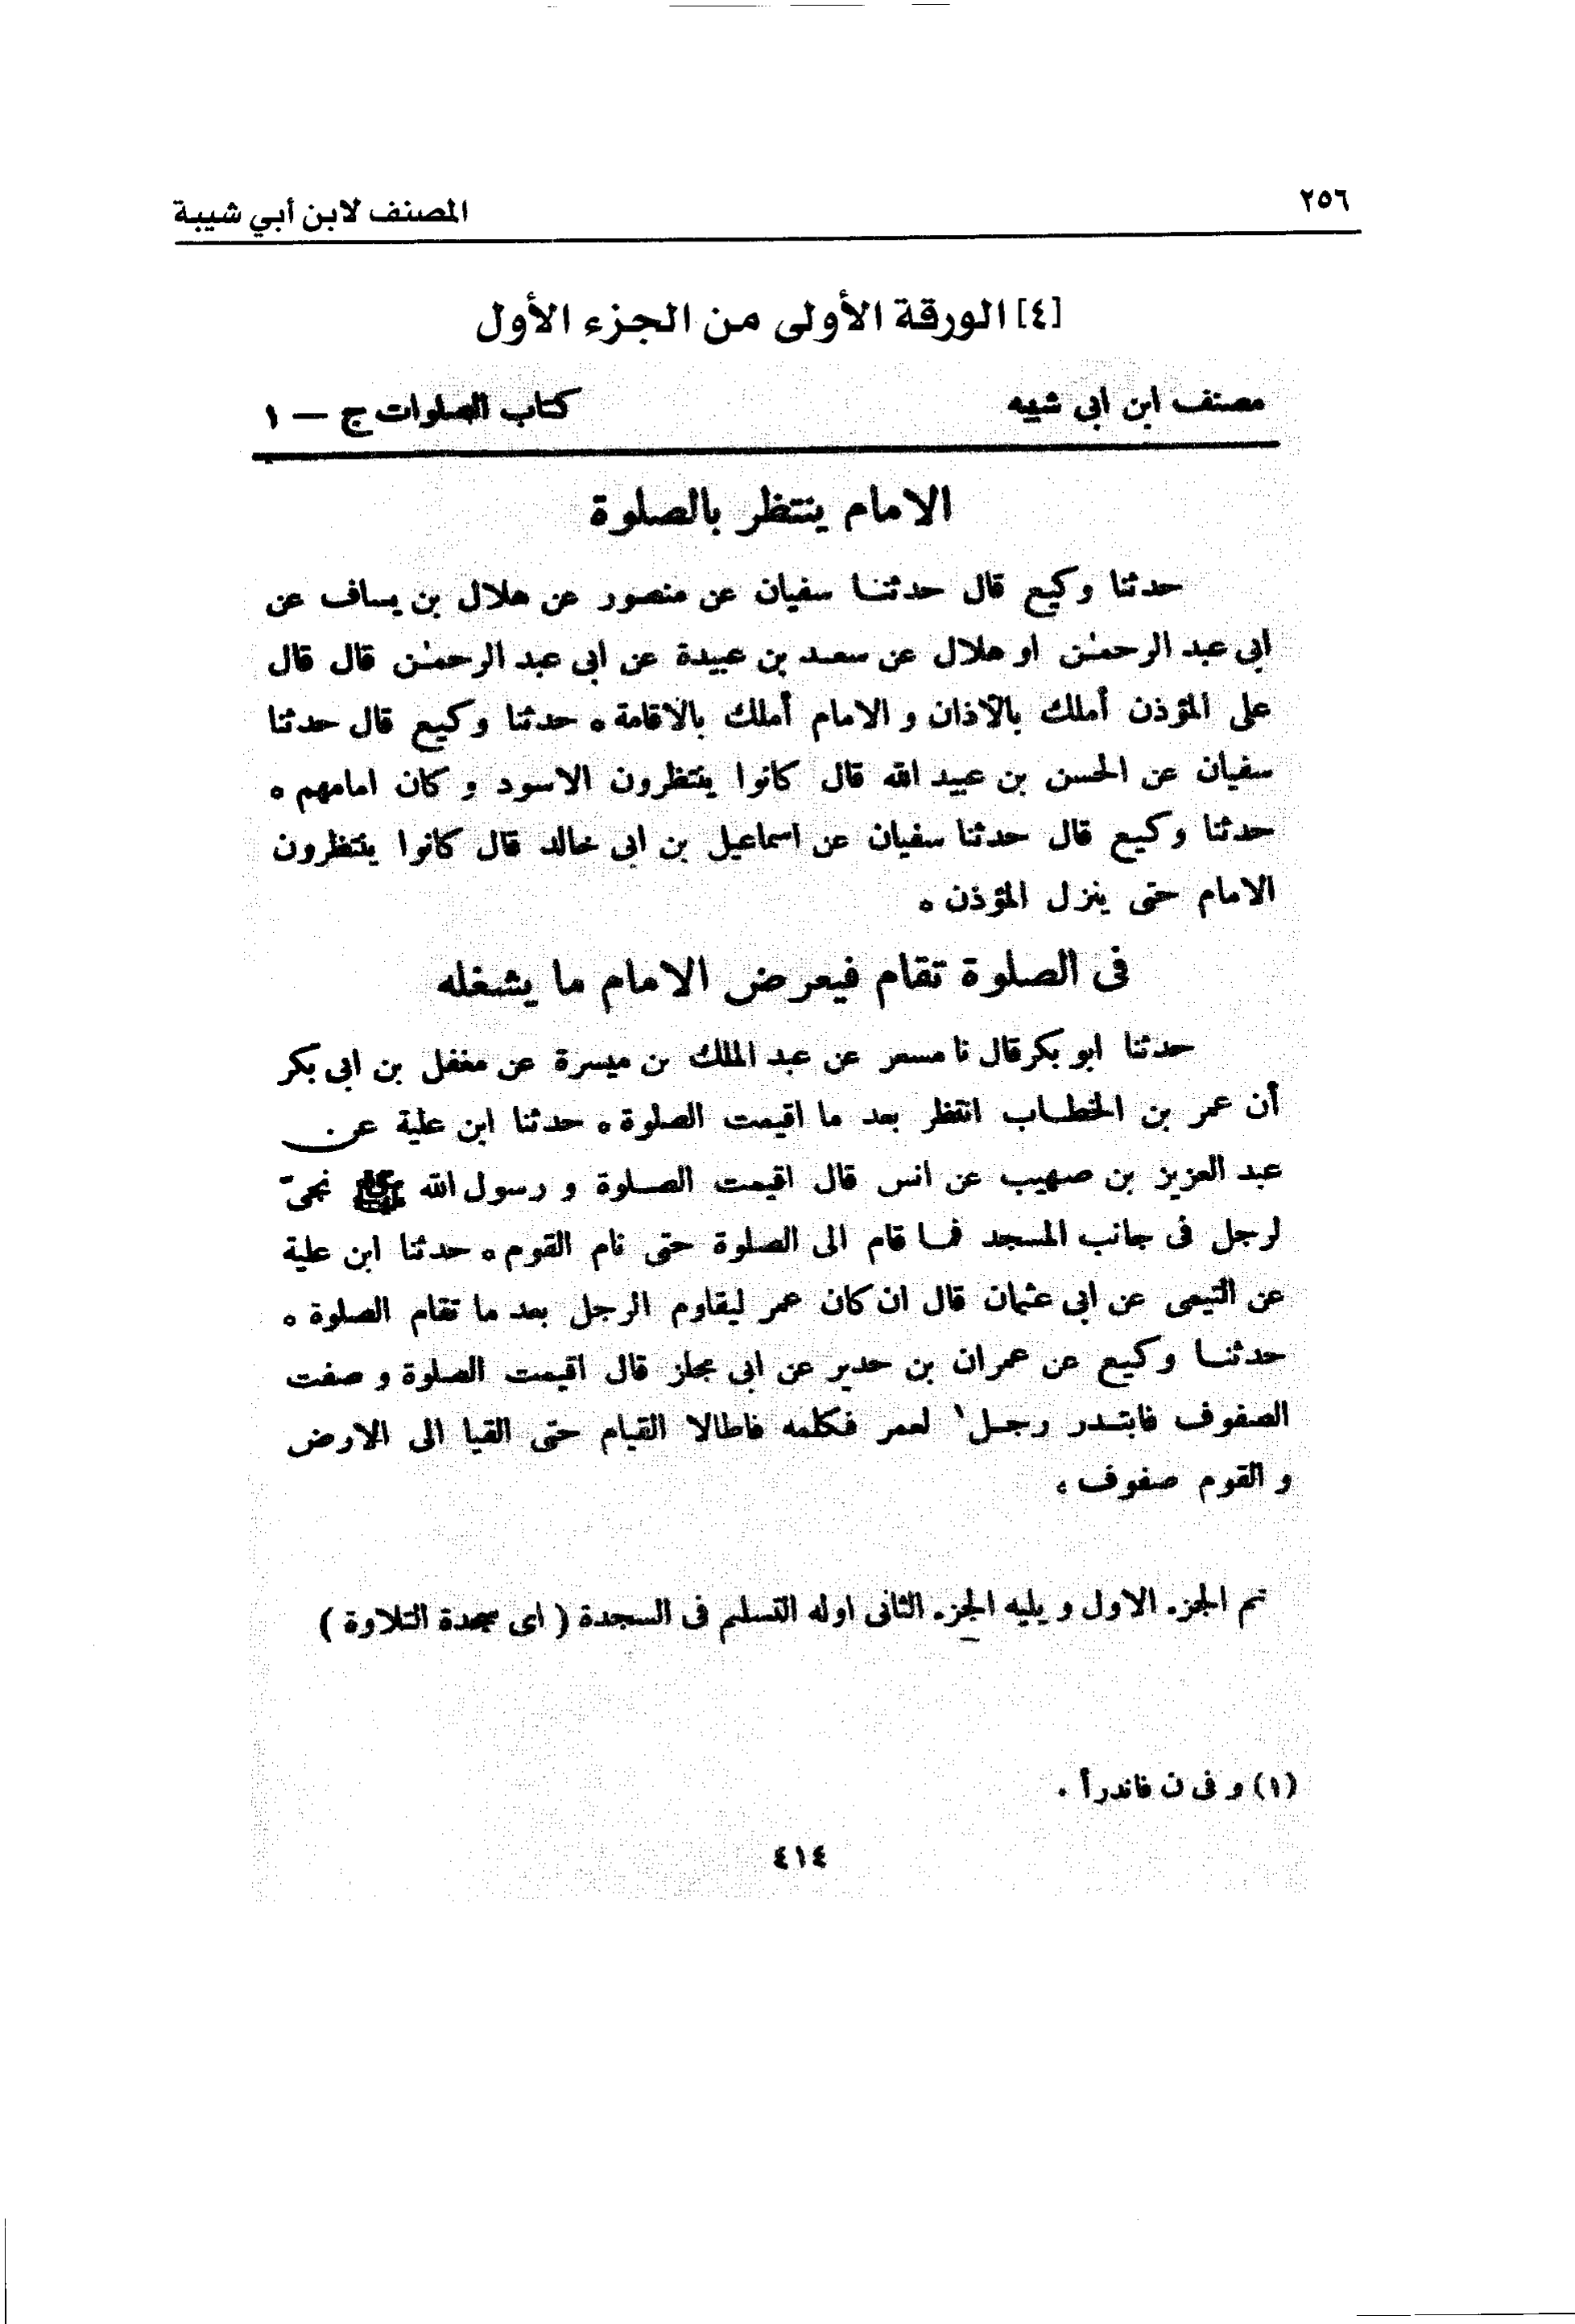 ٢٥٦
المصنف لابن أبي شيبة
[٤] الورقة الأولى من الجزء الأول
مصنف ابن ابى شيبه
كتاب الصلوات ج — ١
الامام ينتظر بالصلوة
حدثنا وكيع قال حدثنا سفيان عن منصور عن هلال بن يساف عن
ابى عبد الرحمٰن او هلال عن سعد بن عبيدة عن ابى عبد الرحمٰن قال قال
على المؤذن أملك بالآذان و الامام أملك بالاقامة ه حدثنا وكيع قال حدثنا
سفيان عن الحسن بن عبيد الله قال كانوا ينتظرون الاسود و كان امامهم ه
حدثنا وكيع قال حدثنا سفيان عن اسماعيل بن ابى خالد قال كانوا ينتظرون
الامام حتى ينزل المؤذن ه
فى الصلوة تقام فيعرض الامام ما يشغله
حدثنا ابو بكر قال نا مسعر عن عبد الملك بن ميسرة عن مغفل بن ابى بكر
أن عمر بن الخطاب انتظر بعد ما اقيمت الصلوة ه حدثنا ابن علية عن
عبد العزيز بن صهيب عن انس قال اقيمت الصلوة و رسول الله ﷺ نجىّ
لرجل فى جانب المسجد فما قام الى الصلوة حتى نام القوم ه حدثنا ابن علية
عن التيمى عن ابى عثمان قال ان كان عمر ليقاوم الرجل بعد ما تقام الصلوة ه
حدثنا وكيع عن عمران بن حدير عن ابى مجلز قال اقيمت الصلوة و صفت
الصفوف فابتدر رجل ١ لعمر فكلمه فاطالا القيام حتى القيا الى الارض
و القوم صفوف ه
تم الجزء الاول و يليه الجزء الثانى اوله التسليم فى السجدة ( اى سجدة التلاوة )
(١) و فى ن فاندرأ .
٤١٤